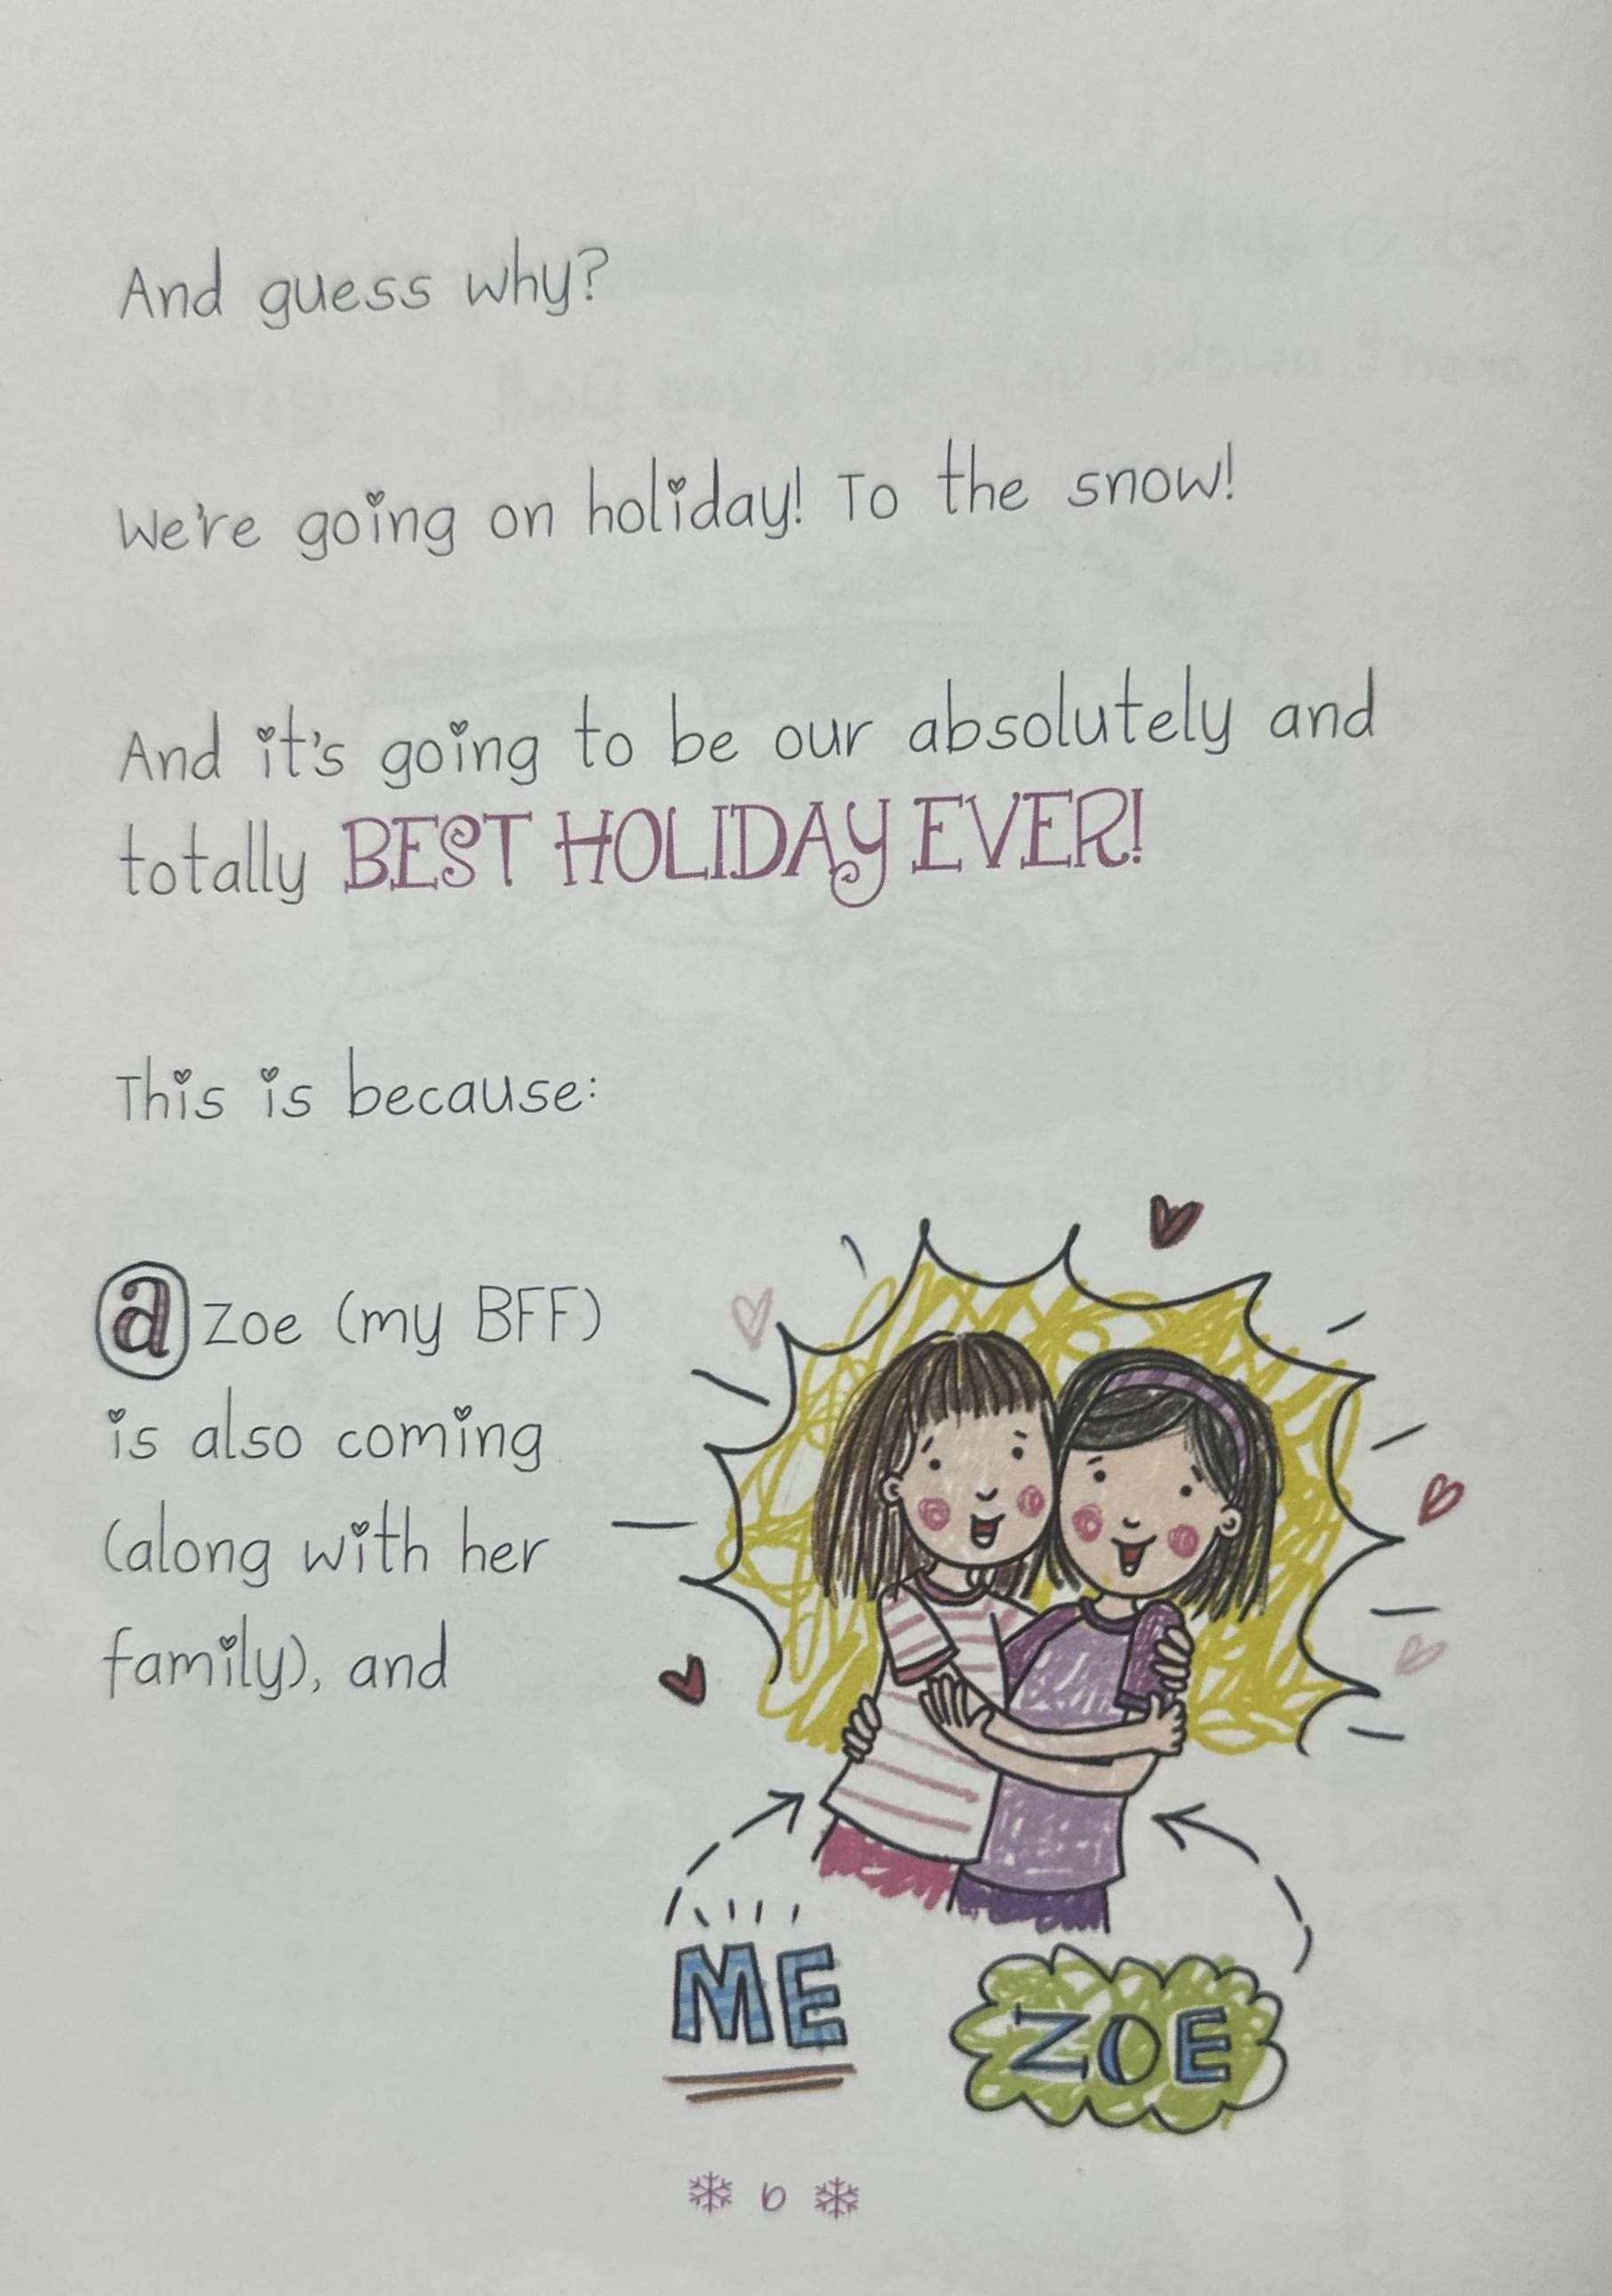 And guess why?
We're going on holiday! To the snow!
And it's going to be our absolutely and
totally BEST HOLIDAY EVER!
This is because:
a Zoe (my BFF)
is also coming
(along with her
family), and
ME
ZOE
6